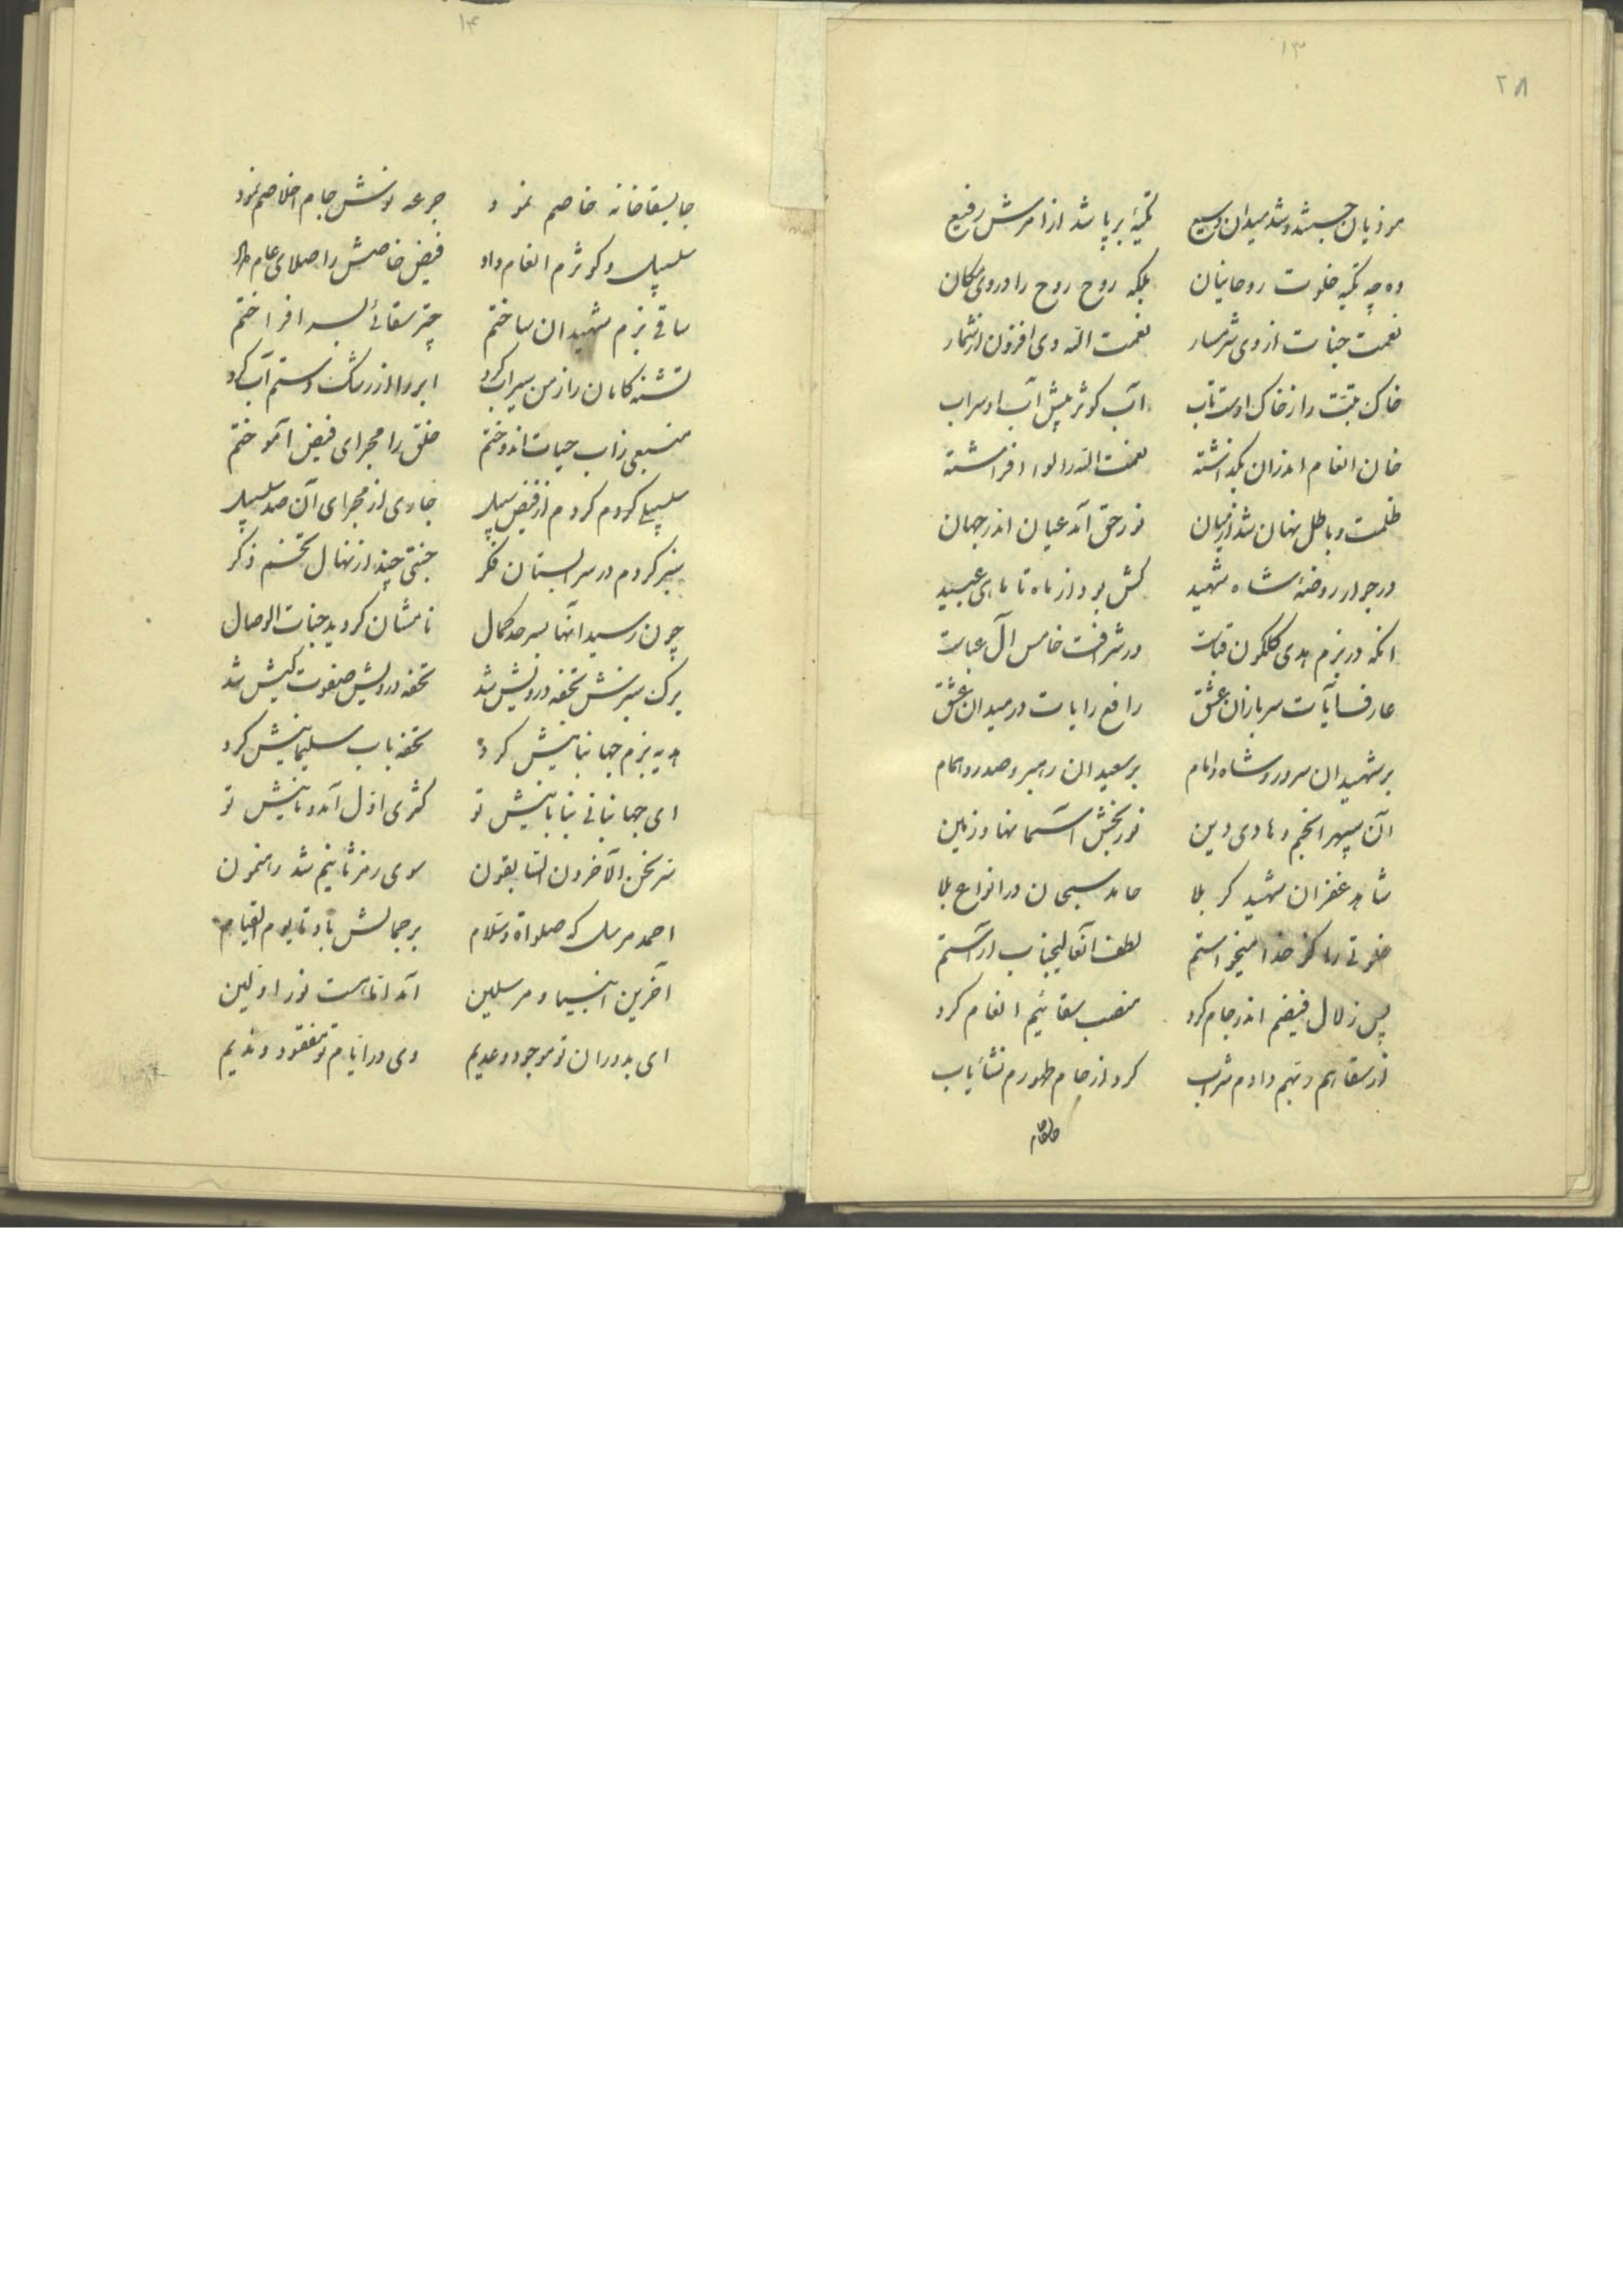 ۱۳
۲۸
موذیان جستند و شد میدان وسیع تکیهٔ برپا شد از امرش رفیع
وه چه تکیه خلوت روحانیان بلکه روح روح را در وی مکان
نعمت جنات از وی شرمسار نعمت الله وی افزون از شمار
خاک تبت را ز خاک اوست تاب آب کوثر پیش آب او سراب
خان انعام اندران بگذاشته نعمت الله را لوا افراشته
ظلمت و باطل نهان شد از میان نور حق آمد عیان اندر جهان
در جوار روضهٔ شاه شهید کش بود از ماه تا ماهی عبید
انکه در بزم هدی گلگون قباست در شرافت خامس آل عباست
عارف آیات سربازان عشق رافع رایات در میدان عشق
بر شهیدان سرور و شاه و امام بر سعیدان رهبر و صدر و همام
آن سپهر انجم و هادی دین نور بخش آسمانها و زمین
شاهد غفران شهید کربلا حامد سبحان در انواع بلا
خلوتی را کز خدا میخواستم لطف آنعالیجناب آراستم
پس زلال فیضم اندر جام کرد منصب سقائیم انعام کرد
از سقاهم ربهم دادم شراب کرد از جام طهورم نشأیاب
۱۴
جا بسقاخانه خاصم نمود جرعه نوش جام اخلاصم نمود
سلسبیل و کوثرم انعام داد فیض خاصش را صلای عام داد
ساقی بزم شهیدان ساختم چتر سقائی بسر افراختم
تشنه کامان را ز من سیراب کرد ابر را از رشک دستم آب کرد
منبعی زاب حیات اندوختم خلق را مجرای فیض آموختم
سلسبیلی کردم از فیض سبیل جاری از مجرای آن صد سلسبیل
سبز کردم در سرابستان فکر جنتی چند از نهال تخم ذکر
چون رسید آنها بسر حد کمال نامشان گردید جنات الوصال
برک سبزش تحفه درویش شد تحفه درویش صفوت کیش شد
هدیه بزم جهانبانیش کرد تحفه باب سلیمانیش کرد
ای جهانبانی بنا بانیش تو کنزی اول آمد و ثانیش تو
سر نحن الآخرون السابقون سوی رمز ثانیم شد رهنمون
احمد مرسل که صلواة و سلام بر جمالش باد تا یوم القیام
آخرین انبیا و مرسلین آمد اما هست نور اولین
ای بدوران تو موجود و عدیم وی در ایام تو مفقود و ندیم